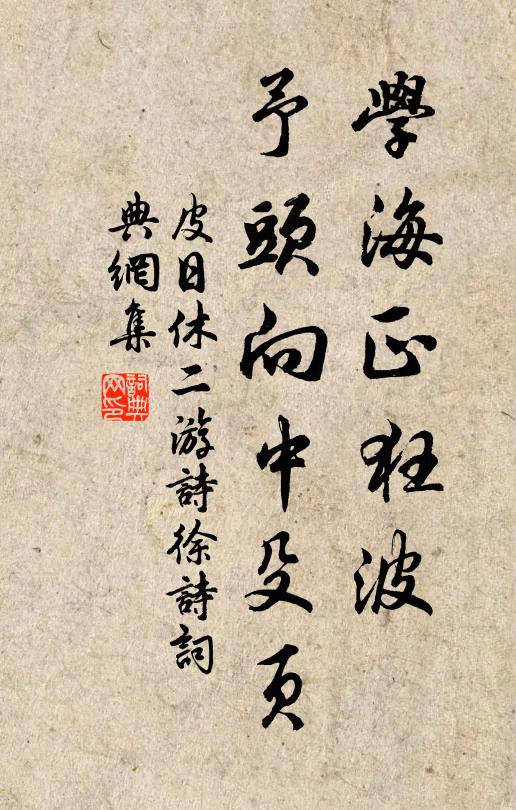 學海正狂波
予頭向中㱩頁
皮日休二游詩徐詩詞
典網集
詞典網印